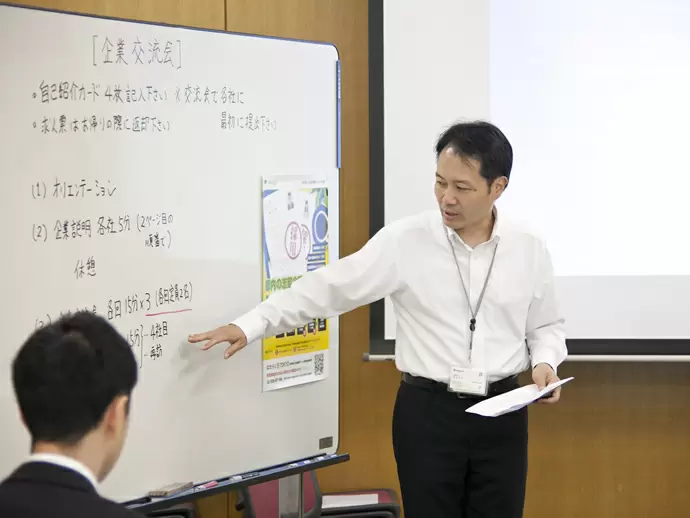 [企業交流会]
• 自己紹介カード 4枚記入下さい ※交流会で各社に
• 求人票はお帰りの際に返却下さい 最初に提出下さい
(1) オリエンテーション
(2) 企業説明 各社5分 (2ページ目の
順番で)
休憩
各回15分×3 (各回定員2名)
5分} -4社目
-再訪